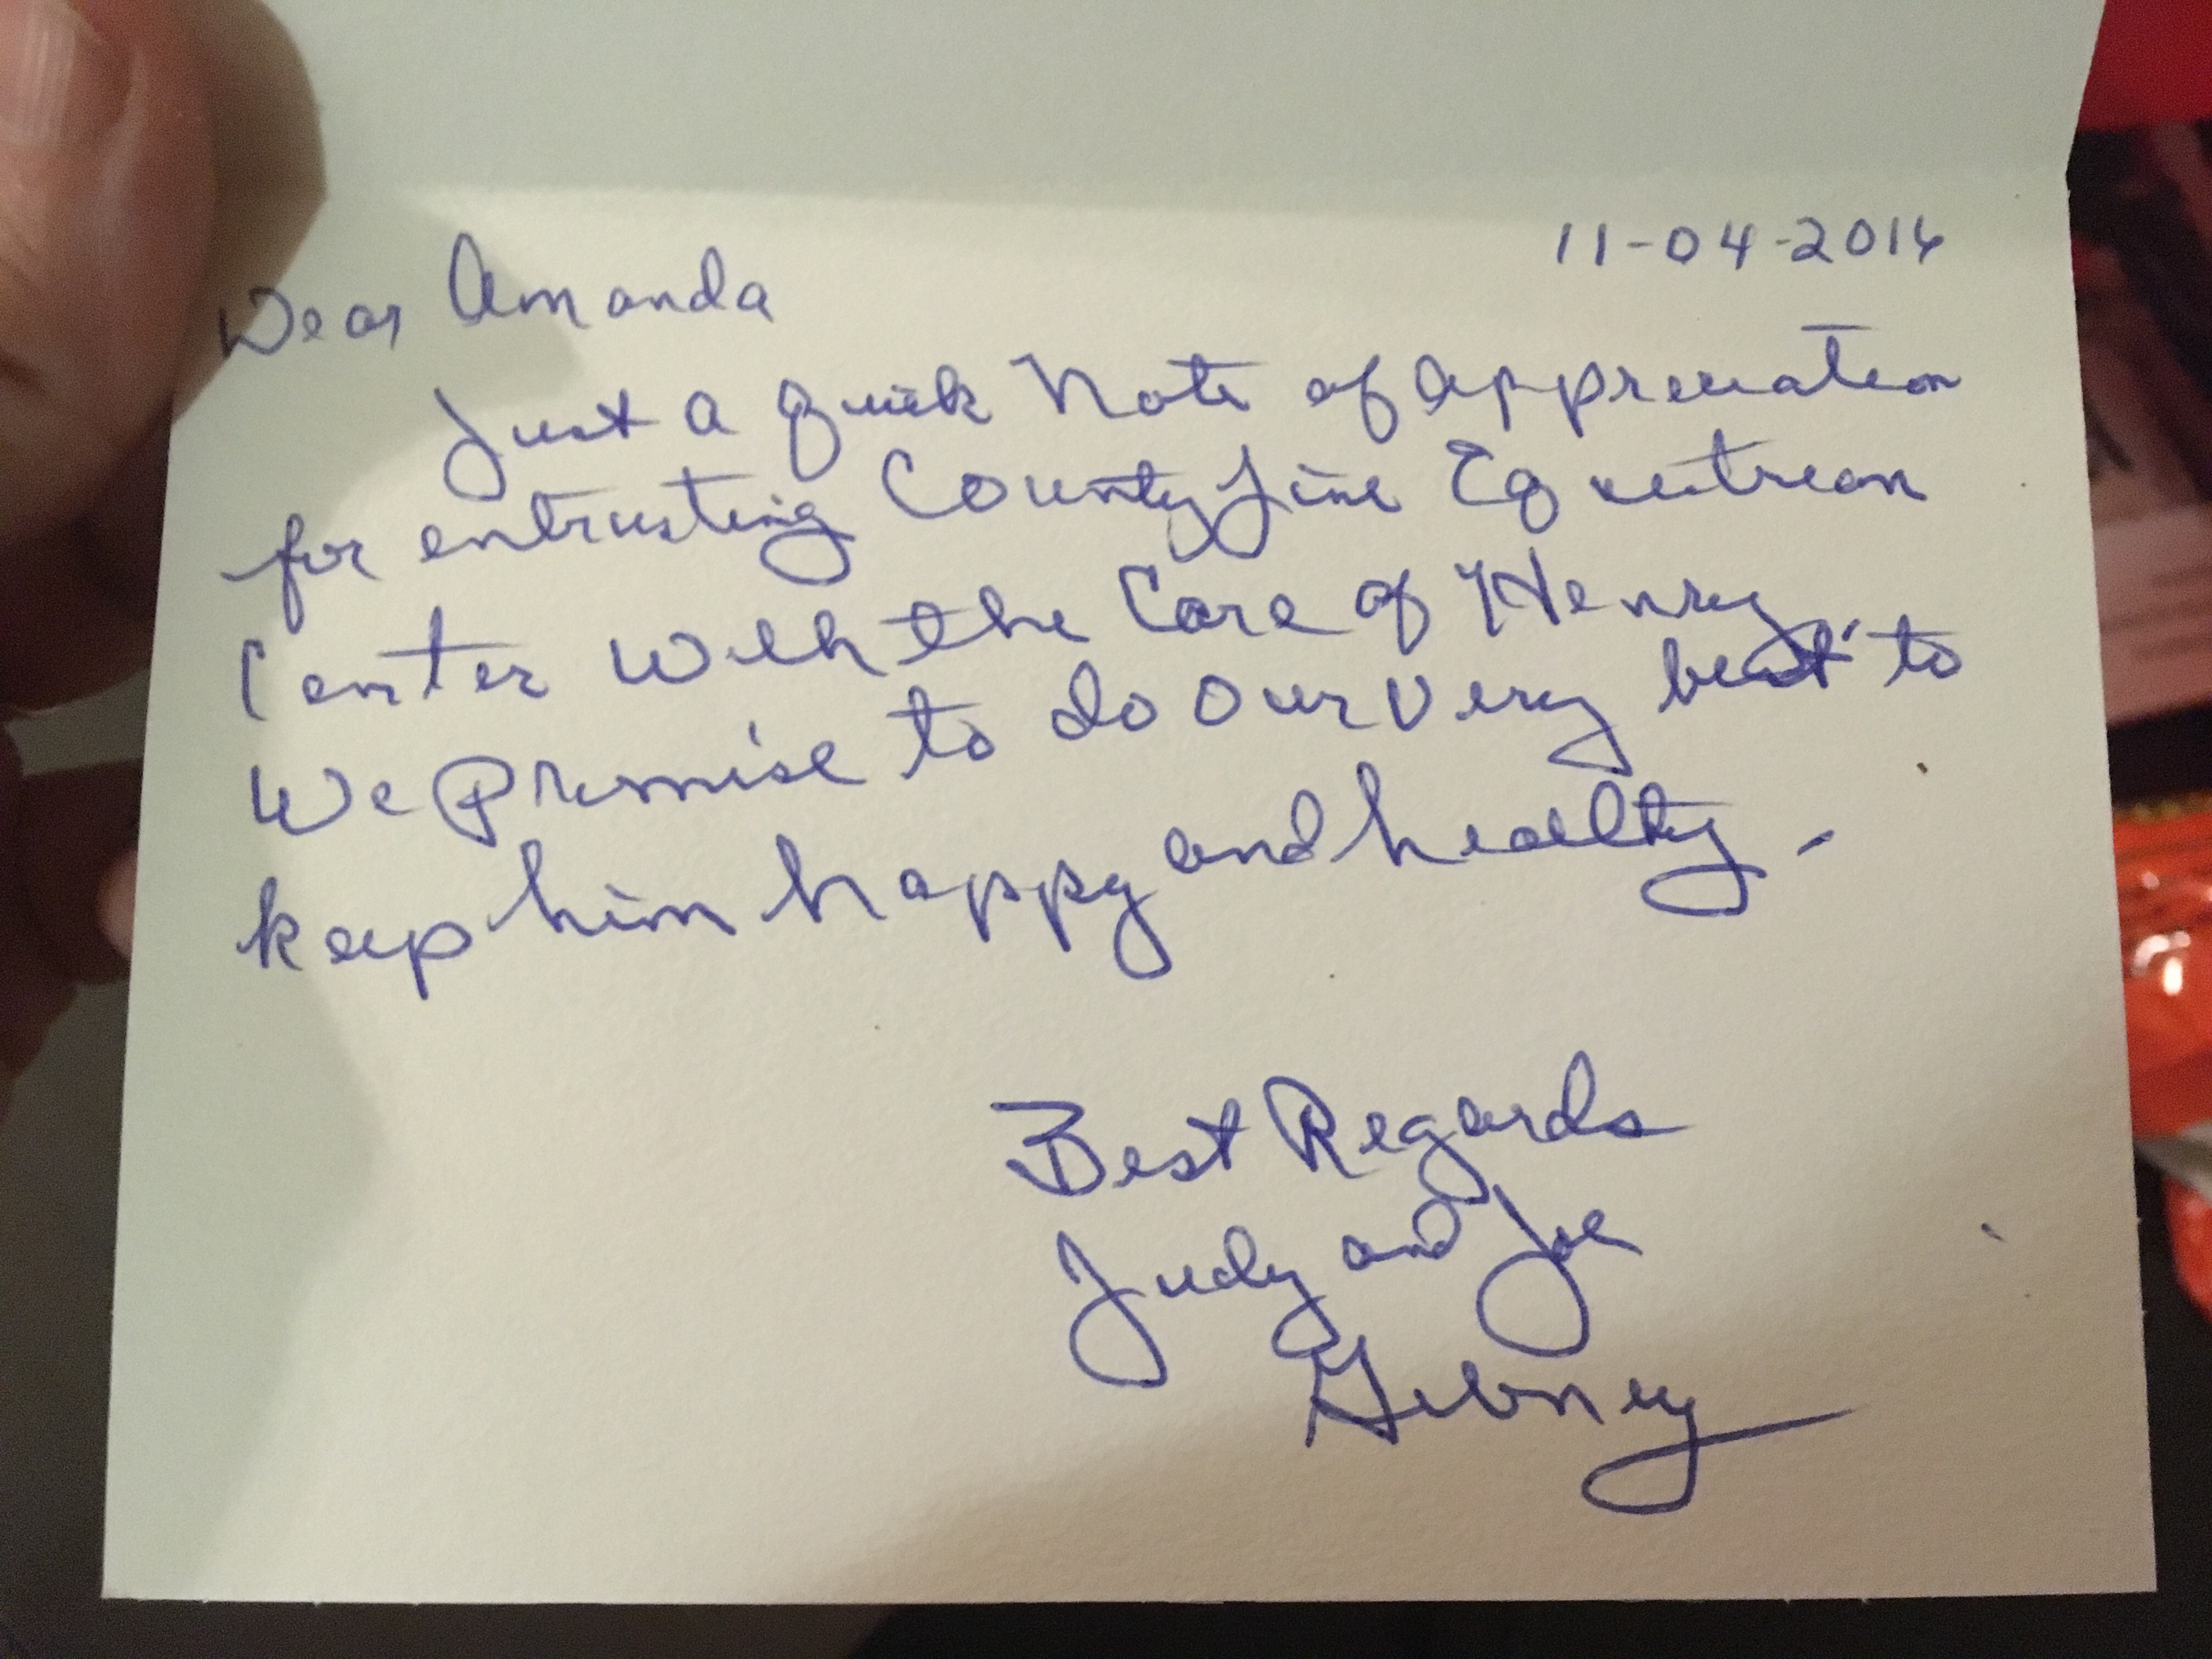 11-04-2016
Dear Amanda
Just a quick Note of Appreciation
for entrusting County Line Equestrian
Center with the Care of Henry.
We Promise to do our very best to
keep him happy and healthy.
Best Regards
Judy and Joe
Gibney